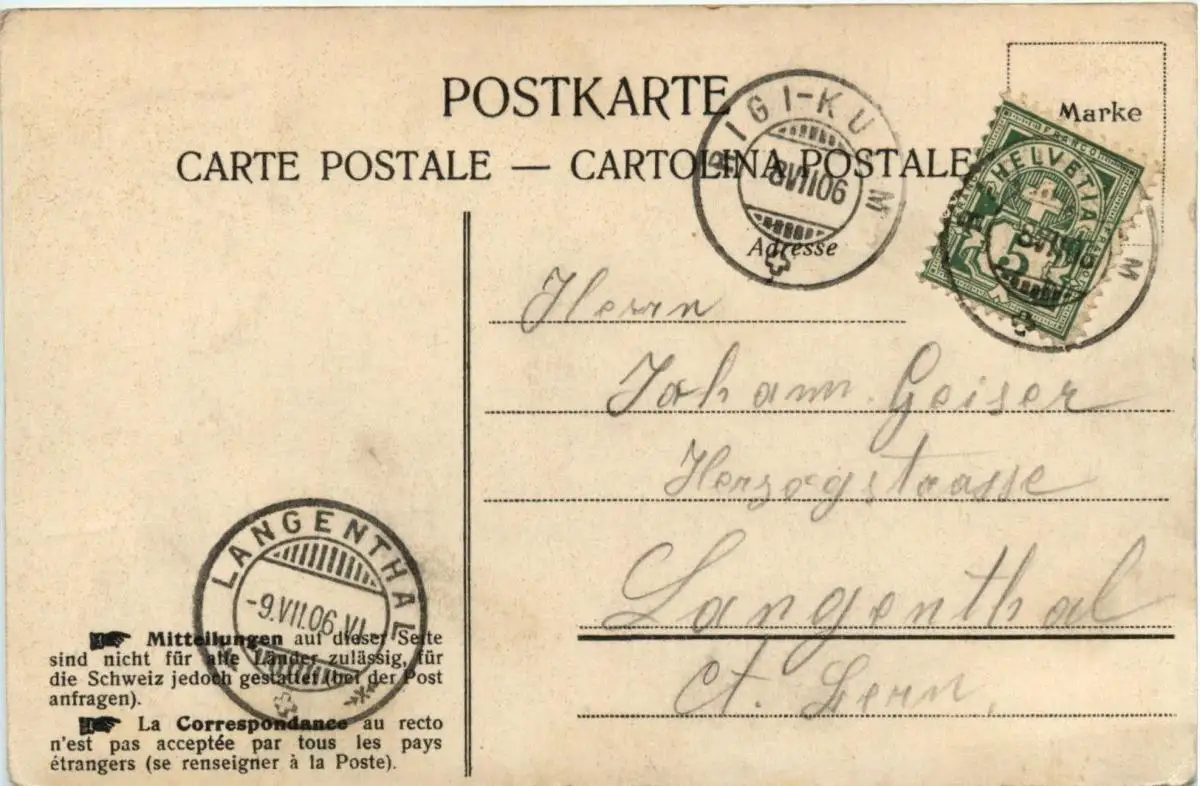 POSTKARTE
Marke
CARTE POSTALE — CARTOLINA POSTALE
RIGI-KULM
8 VII 06
HELVETIA
FRANCO
5
8 VII
Adresse
Herrn
Johann Geiser
Herzogstrasse
Langenthal
Ct. Bern,
LANGENTHAL
-9.VII.06.VI-
Mitteilungen auf dieser Seite
sind nicht für alle Länder zulässig, für
die Schweiz jedoch gestattet (bei der Post
anfragen).
La Correspondance au recto
n'est pas acceptée par tous les pays
étrangers (se renseigner à la Poste).